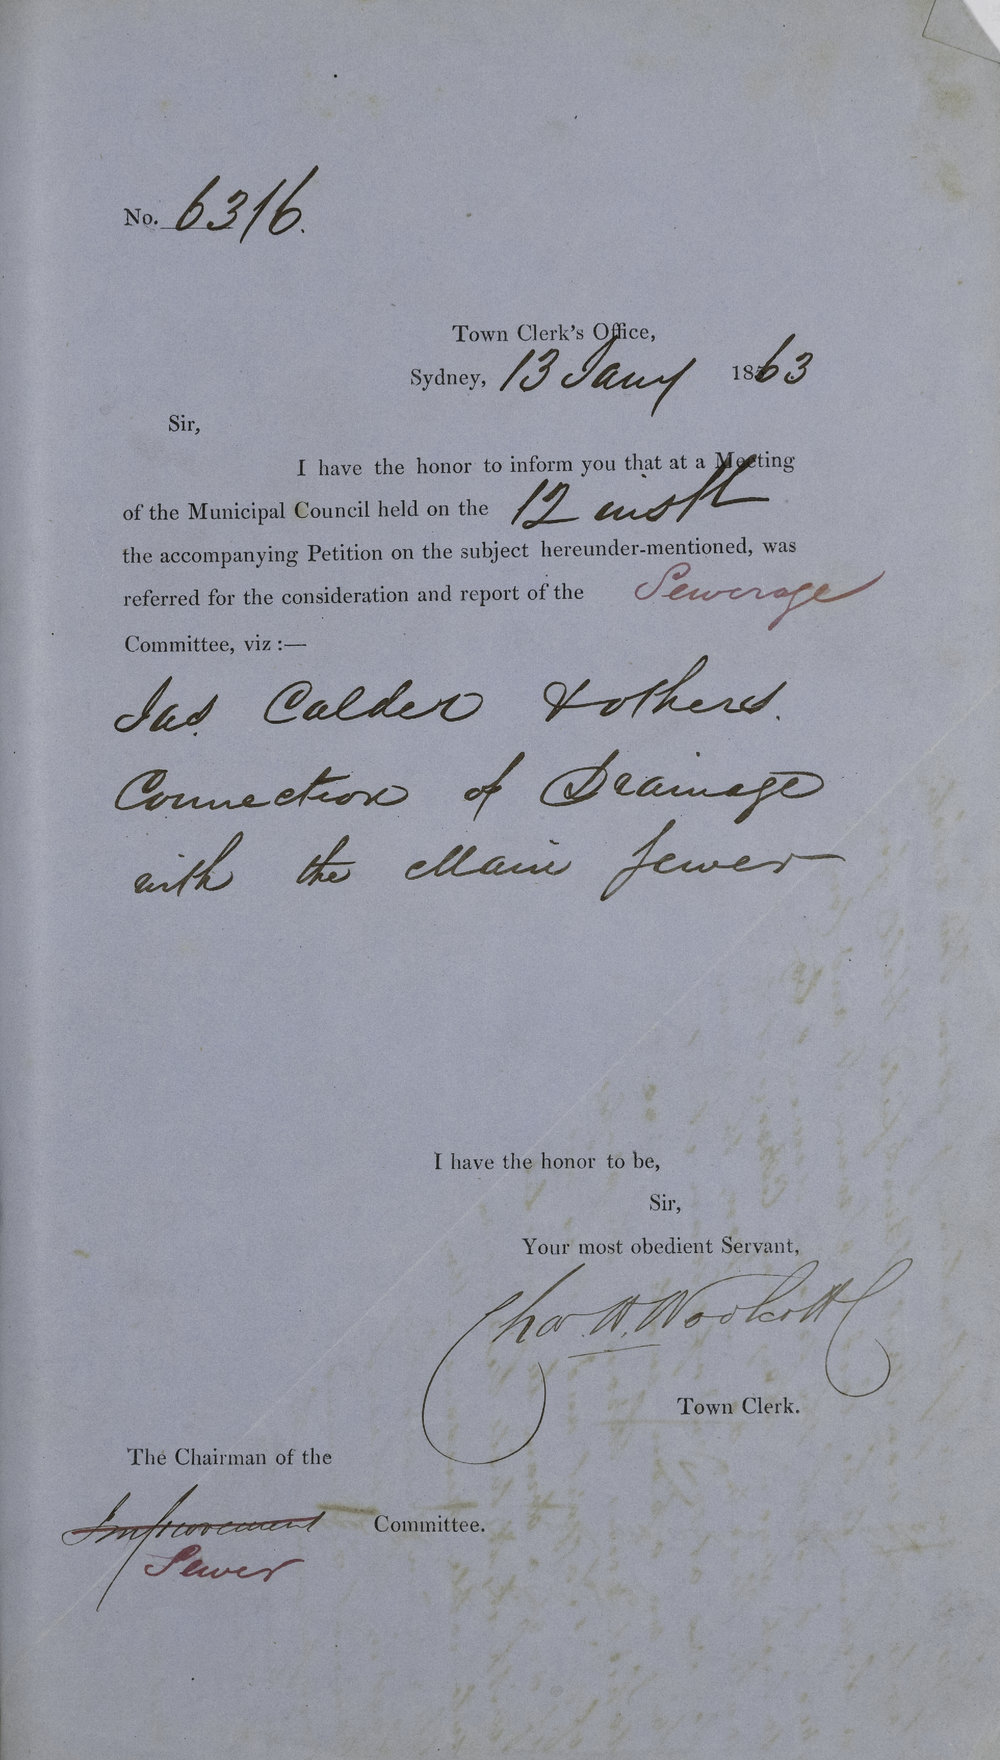 No. 6316.
Town Clerk's Office,
Sydney, 13 Jany 1863
Sir,
I have the honor to inform you that at a Meeting
of the Municipal Council held on the 12 instt
the accompanying Petition on the subject hereunder-mentioned, was
referred for the consideration and report of the Sewerage
Committee, viz :—
Jas. Calder & others.
Connection of Drainage
with the Main Sewer
I have the honor to be,
Sir,
Your most obedient Servant,
Chas. H. Woolcott
Town Clerk.
The Chairman of the
Improvement Committee.
Sewer